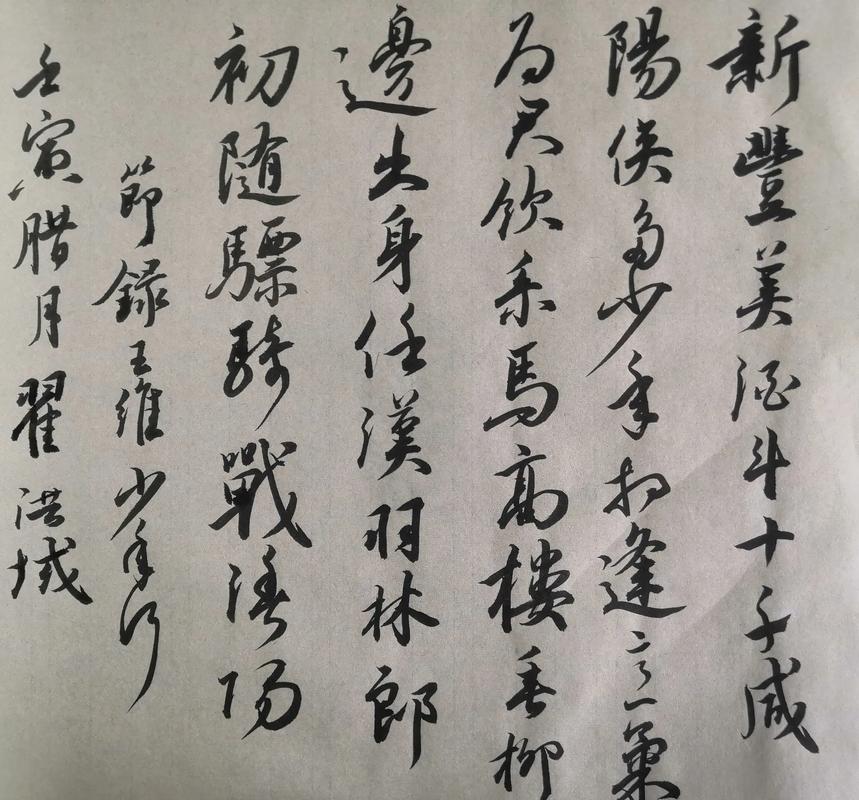 新豐美酒斗十千咸
陽侠多少年相逢意氣
为君飲系馬高樓垂柳
邊出身任漢羽林郎
初随驃騎戰漁陽
節録王維少年行
壬寅腊月翟洪域